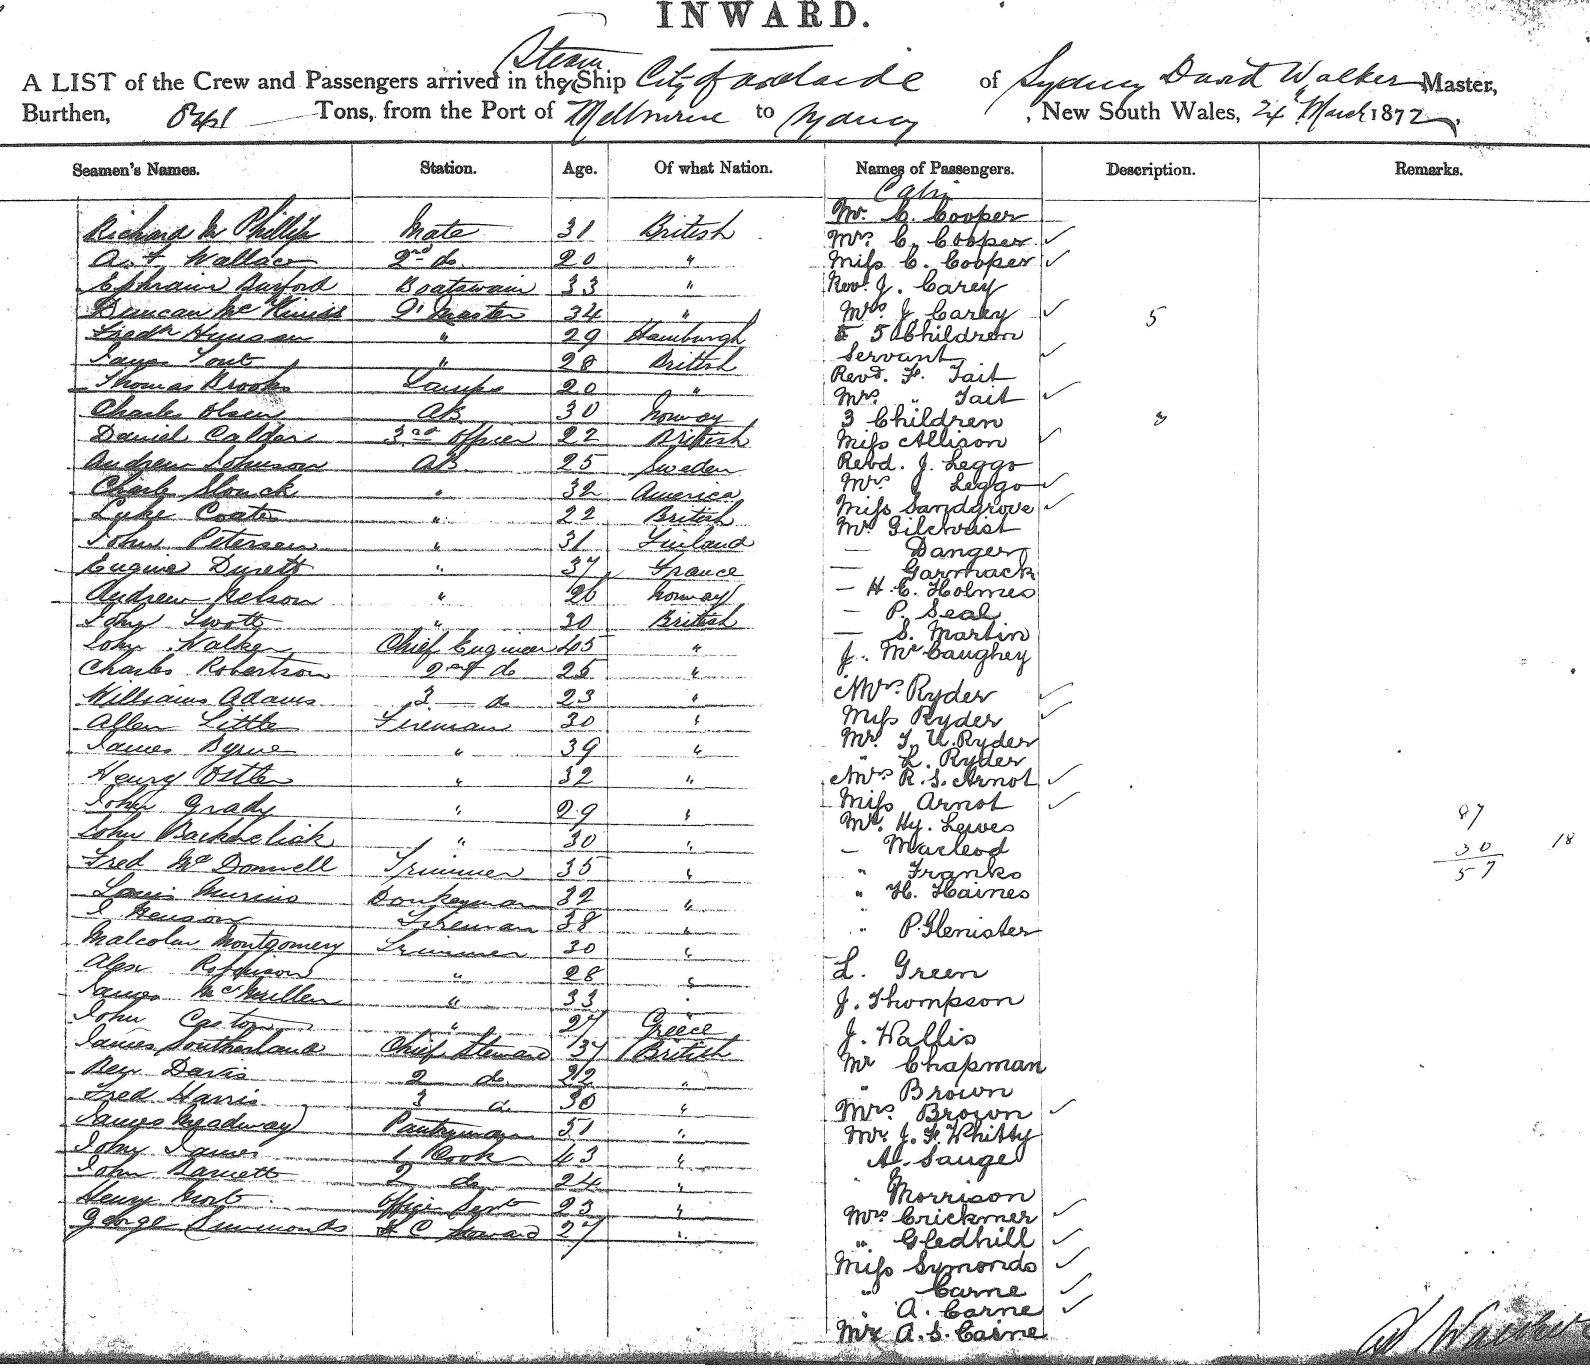 INWARD.
Steam
A LIST of the Crew and Passengers arrived in the Ship City of Adelaide of Sydney David Walker Master,
Burthen, Tons, from the Port of Melbourne to , New South Wales, 24 March 1872
Seamen's Names. Station. Age. Of what Nation. Names of Passengers. Description. Remarks.
Cabin
Mr. C. Cooper
Richard M Phillips Mate 31 British Mrs. C. Cooper ✓
Wallace 2nd do 20 " Miss C. Cooper ✓
Ephraim Burford Boatswain 33 " Revd. J. Carey
Duncan Mc Master 34 " Mrs J Carey ✓ 5
Fredk " 29 Hamburgh 5 Children
James " 28 British Servant ✓
Thomas Brooks Lamps 20 " Revd. F. Tait
Mrs. " Tait ✓
Charles Olsen AB 30 Norway 3 Children 3
Daniel Calder 3rd Officer 22 British Miss Allison ✓
Andrew Johnson AB 25 Sweden Revd. J. Leggo
Mrs J Leggo ✓
Charles " 32 America Miss Sandgrove ✓
Luke Coates " 22 British Mr. Gilchrist
John Petersen " 31 Finland — Danger
Eugene " 37 France — Garmack
Andrew Nelson " 26 Norway — H. C. Holmes
John " 30 British — P. Seal
— S. Martin
John Walker Chief Engineer 45 " J. McCaughey
Charles Robertson 2nd do 25 "
Williams Adams 3 — do 23 " Mrs. Ryder ✓
Allen Little Fireman 30 " Miss Ryder ✓
James Byrne " 39 " Mr. T. U. Ryder
" L. Ryder
Henry Ostler " 32 " Mrs R. S. Arnot ✓
John Grady " 29 " Miss Arnot ✓
Mr. Hy. Lewes 87
John " 30 " — Macleod 30 18
Fred Mc Donnell Trimmer 35 " " Franks 57
Louis Donkeyman 32 " " H. Haines
J Fireman 38 " " P. Glenister
Malcolm Montgomery Trimmer 30 "
Alex Robinson " 28 " L. Green
James McMillen " 33 " J. Thompson
John " 27 Greece J. Wallis
James Southerland Chief Steward 37 British Mr Chapman
Benj Davis 2 do 22 " " Brown
Fred Harris 3 do 30 " Mrs. Brown ✓
James Meadway Pantryman 51 " Mr J. F. Whitty
John James 1 Cook 43 " A. Sauge
John Barnett 2 do 24 " " Morrison
Henry 23 " Mrs Crickmer ✓
George Simmonds Steward 27 " " Gledhill ✓
Miss Symonds ✓
" Carne ✓
" A. Carne ✓
Mr A. S. Caine
Walker